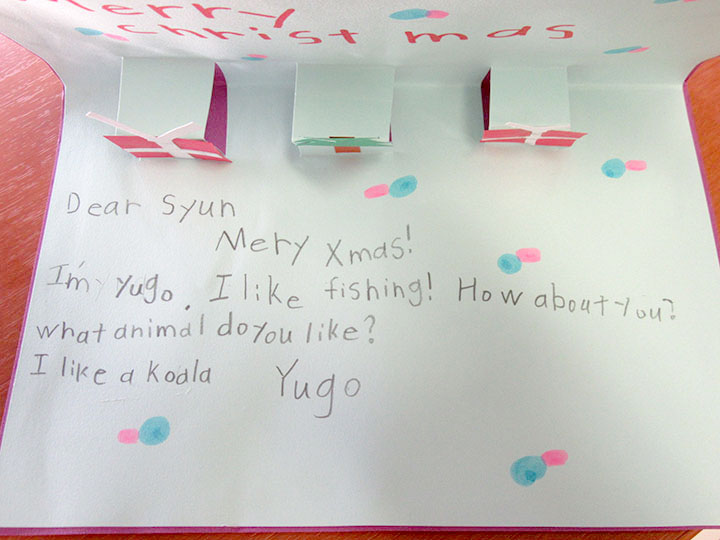 Merry
christmas
Dear Syun
Mery Xmas!
I'm Yugo. I like fishing! How about you?
what animal do you like?
I like a koala Yugo